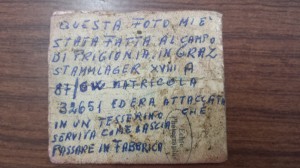 QUESTA FOTO MI È
STATA FATTA AL CAMPO
DI PRIGIONIA, IN GRAZ
STAMMLAGER XVIII A
87/GW MATRICOLA
32651 ED ERA ATTACCATA
IN UN TESSERINO CHE
SERVIVA COME LASCIA
PASSARE IN FABBRICA